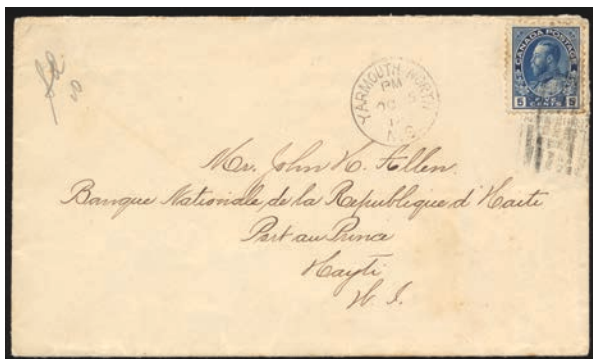 CANADA POSTAGE
5 FIVE CENTS 5
YARMOUTH NORTH
PM
N.S.
Mr. John H. Allen.
Banque Nationale de la Republique d'Haiti
Port au Prince
Hayti
W. I.